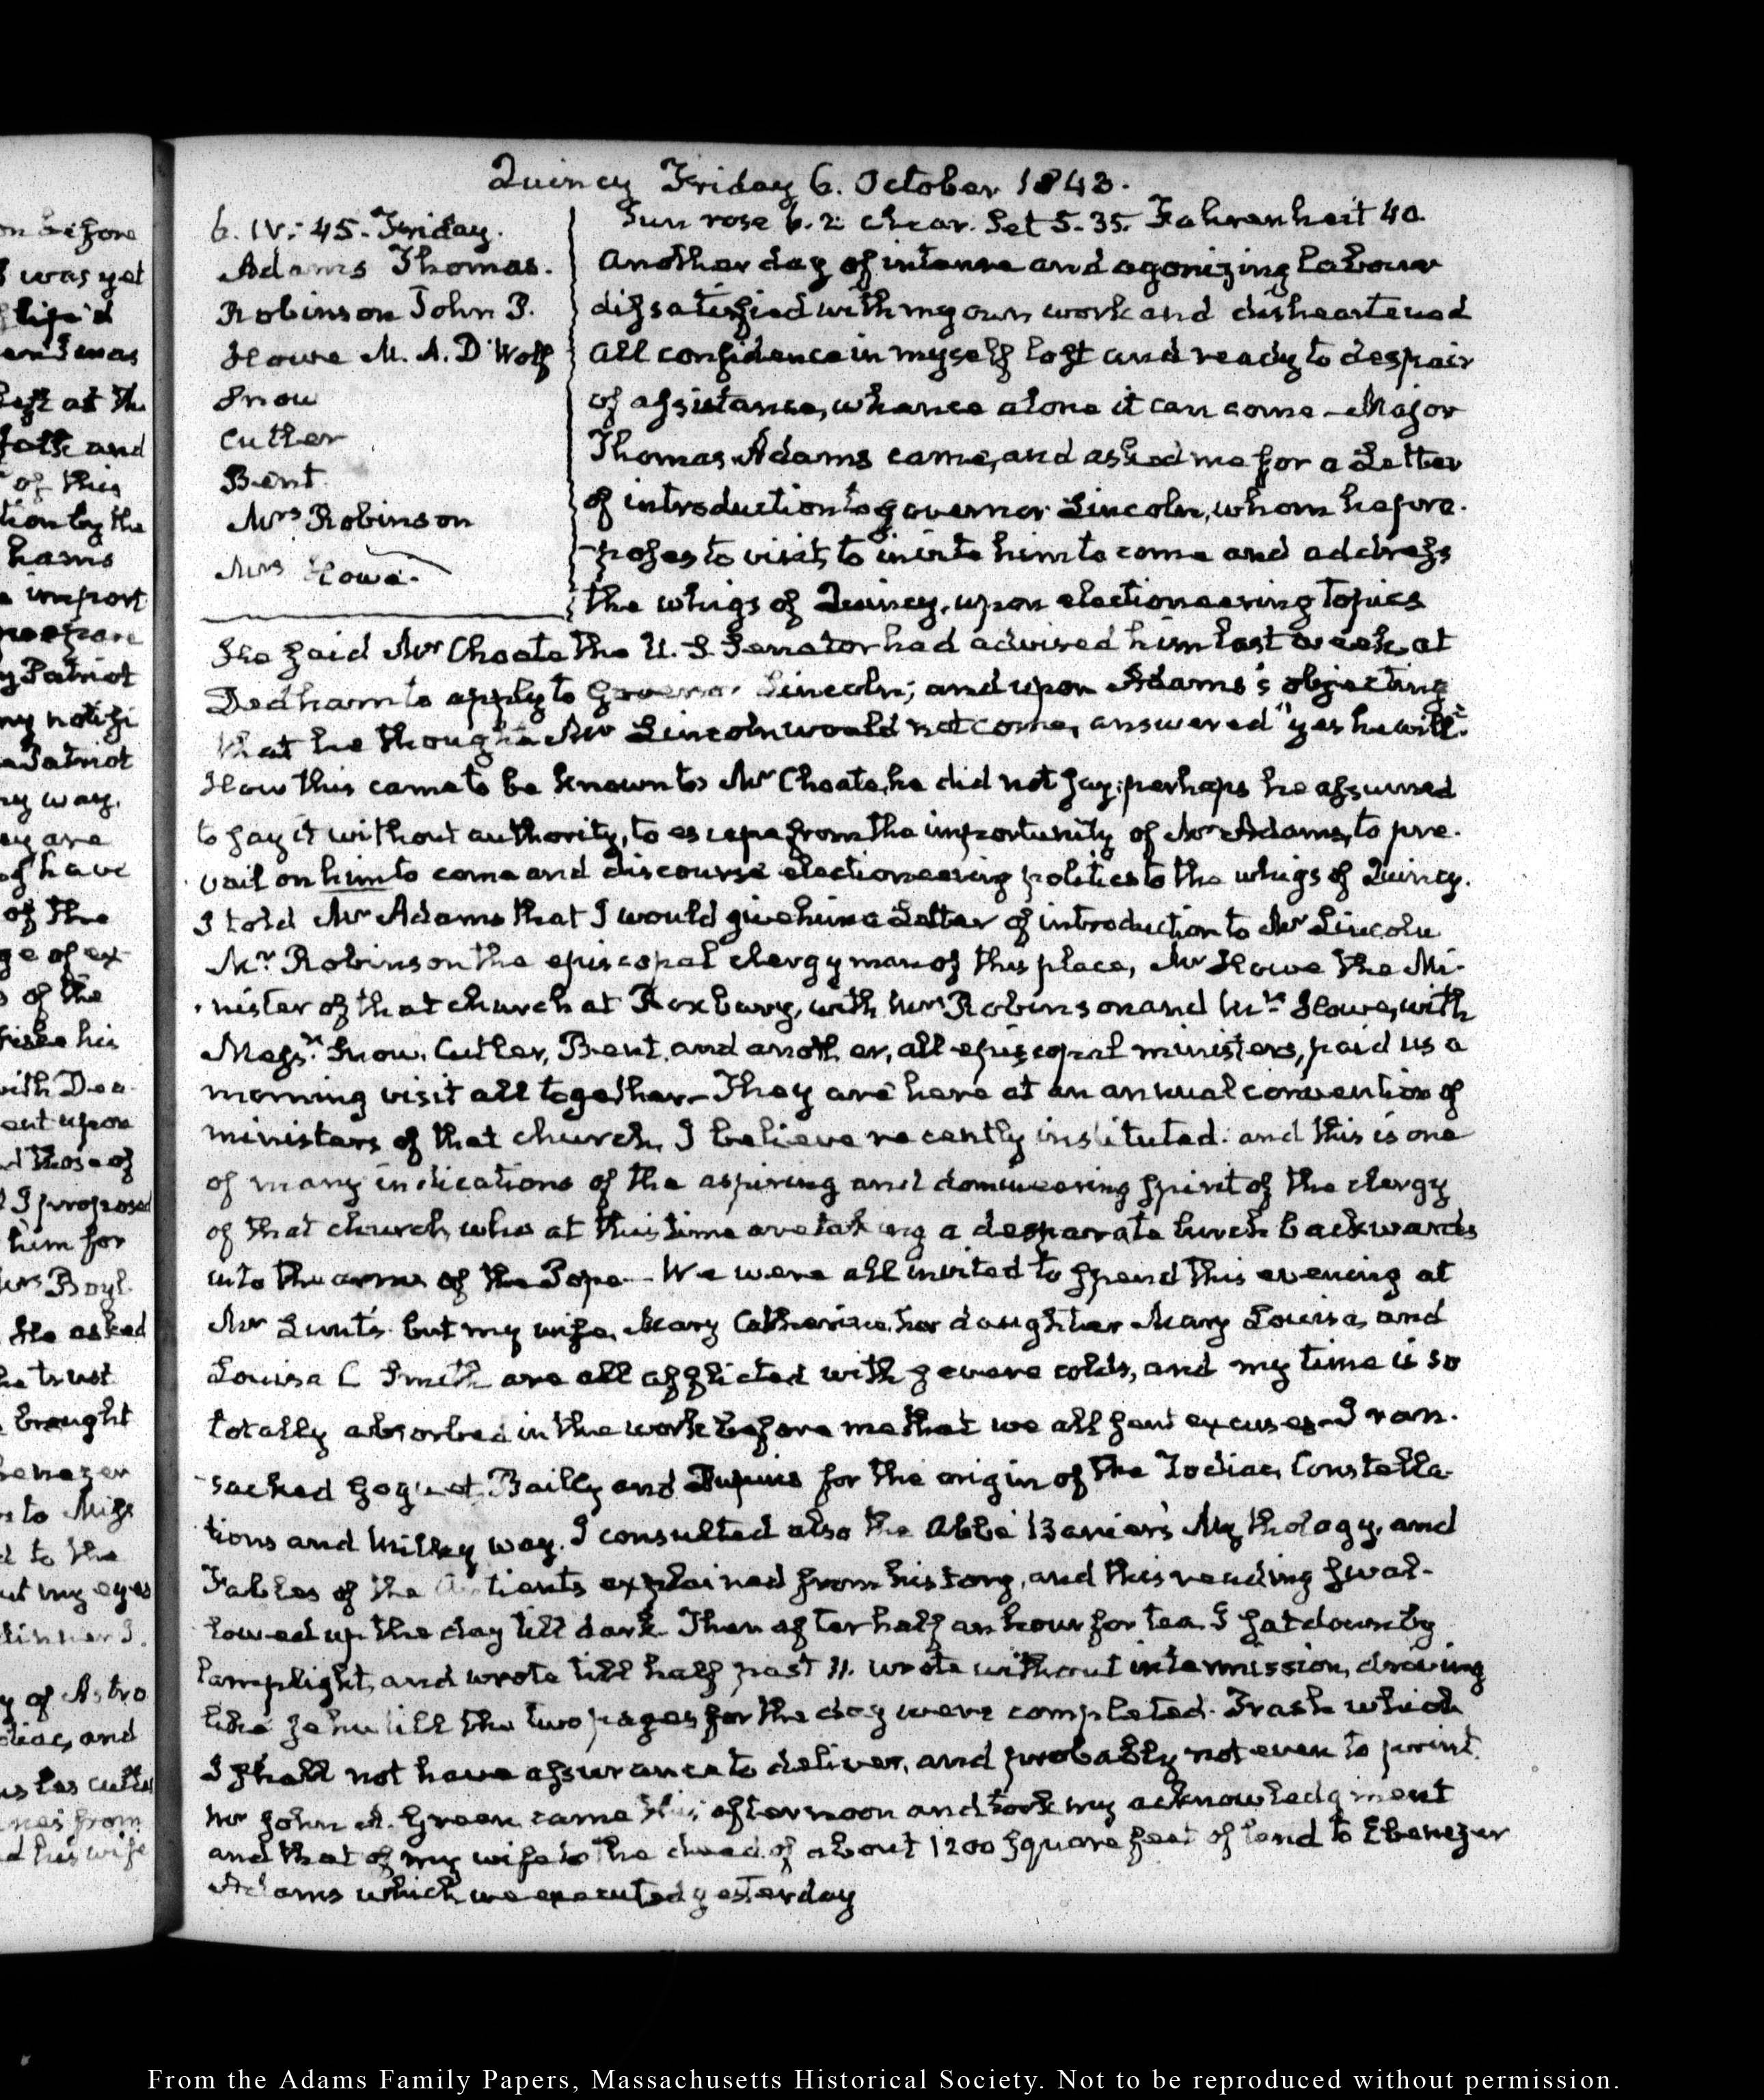 Quincy Friday 6. October 1843.
6. IV: 45. Friday.
Adams Thomas.
Robinson John P.
Howe M. A. D'Wolf
Snow
Cutler
Bent
Mrs Robinson
Mrs Howe.
Sun rose 6. 2 clear. Set 5-35. Fahrenheit 40
Another day of intense and agonizing labour
dissatisfied with my own work and disheartened
all confidence in myself lost and ready to despair
of assistance, whence alone it can come – Major
Thomas Adams came, and asked me for a Letter
of introduction to governor Lincoln, whom he pro-
-poses to visit, to invite him to come and address
the whigs of Quincy, upon electioneering topics
He said Mr Choate the U. S. Senator had advised him last week, at
Dedham to apply to Governor Lincoln; and upon Adams's objecting
that he thought Mr Lincoln would not come, answered "yes he will."
How this came to be known to Mr Choate, he did not say; perhaps he assumed
to say it without authority, to escape from the importunity of Mr Adams, to pre-
vail on him to come and discourse electioneering politics to the whigs of Quincy.
I told Mr Adams that I would give him a Letter of introduction to Mr Lincoln
Mr Robinson the episcopal clergyman of this place, Mr Howe the Mi-
nister of that church at Roxbury, with Mrs Robinson and Mrs Howe, with
Messrs Snow, Cutler, Bent, and another, all episcopal ministers, paid us a
morning visit all together – They are here at an annual convention of
ministers of that church, I believe recently instituted. and this is one
of many indications of the aspiring and domineering spirit of the clergy
of that church, who at this time are taking a desperate lurch backwards
into the arms of the Pope – We were all invited to spend this evening at
Mr Lunt's. but my wife, Mary Catherine, her daughter Mary Louisa, and
Louisa C Smith are all afflicted with severe colds, and my time is so
totally absorbed in the work before me that we all sent excuses – I ran-
-sacked Goguet, Bailly and Dupuis for the origin of the Zodiac, Constella-
tions and Milky way. I consulted also the Abbé Banier's Mythology, and
Fables of the Antients explained from history, and this reading swal-
lowed up the day till dark. Then after half an hour for tea I sat down by
lamplight, and wrote till half past 11. wrote without intermission, driving
like Jehu till the two pages for the day were completed. Trash which
I shall not have assurance to deliver, and probably not even to print.
Mr John A. Green came this afternoon and took my acknowledgment
and that of my wife to the deed of about 1200 square feet of land to Ebenezer
Adams which we executed yesterday
From the Adams Family Papers, Massachusetts Historical Society. Not to be reproduced without permission.